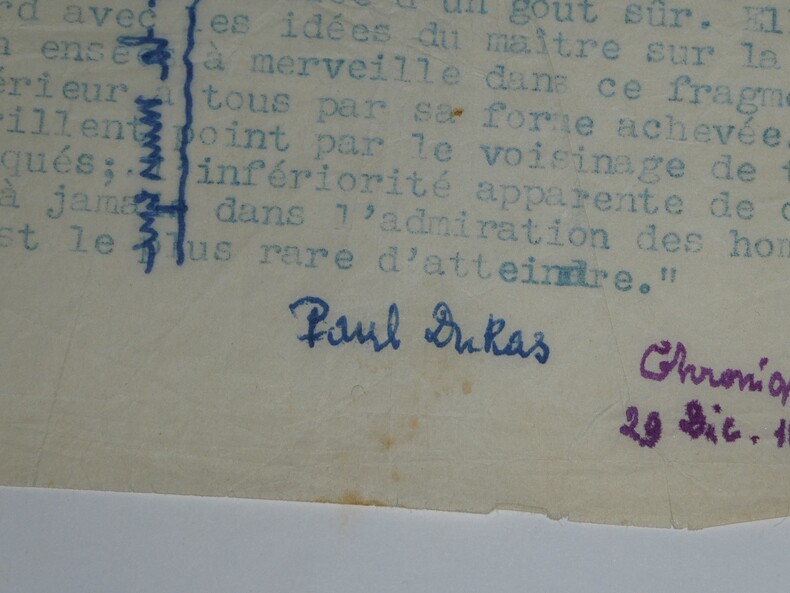 d'un goût sûr. El
rd avec les idées du maître sur la
n ense à merveille dans ce fragm
érieur à tous par sa forme achevée.
rillent point par le voisinage de
qués; infériorité apparente de
à jama dans l'admiration des hom
st le plus rare d'atteindre."
Paul Dukas
Chroni
29 Dic. 1